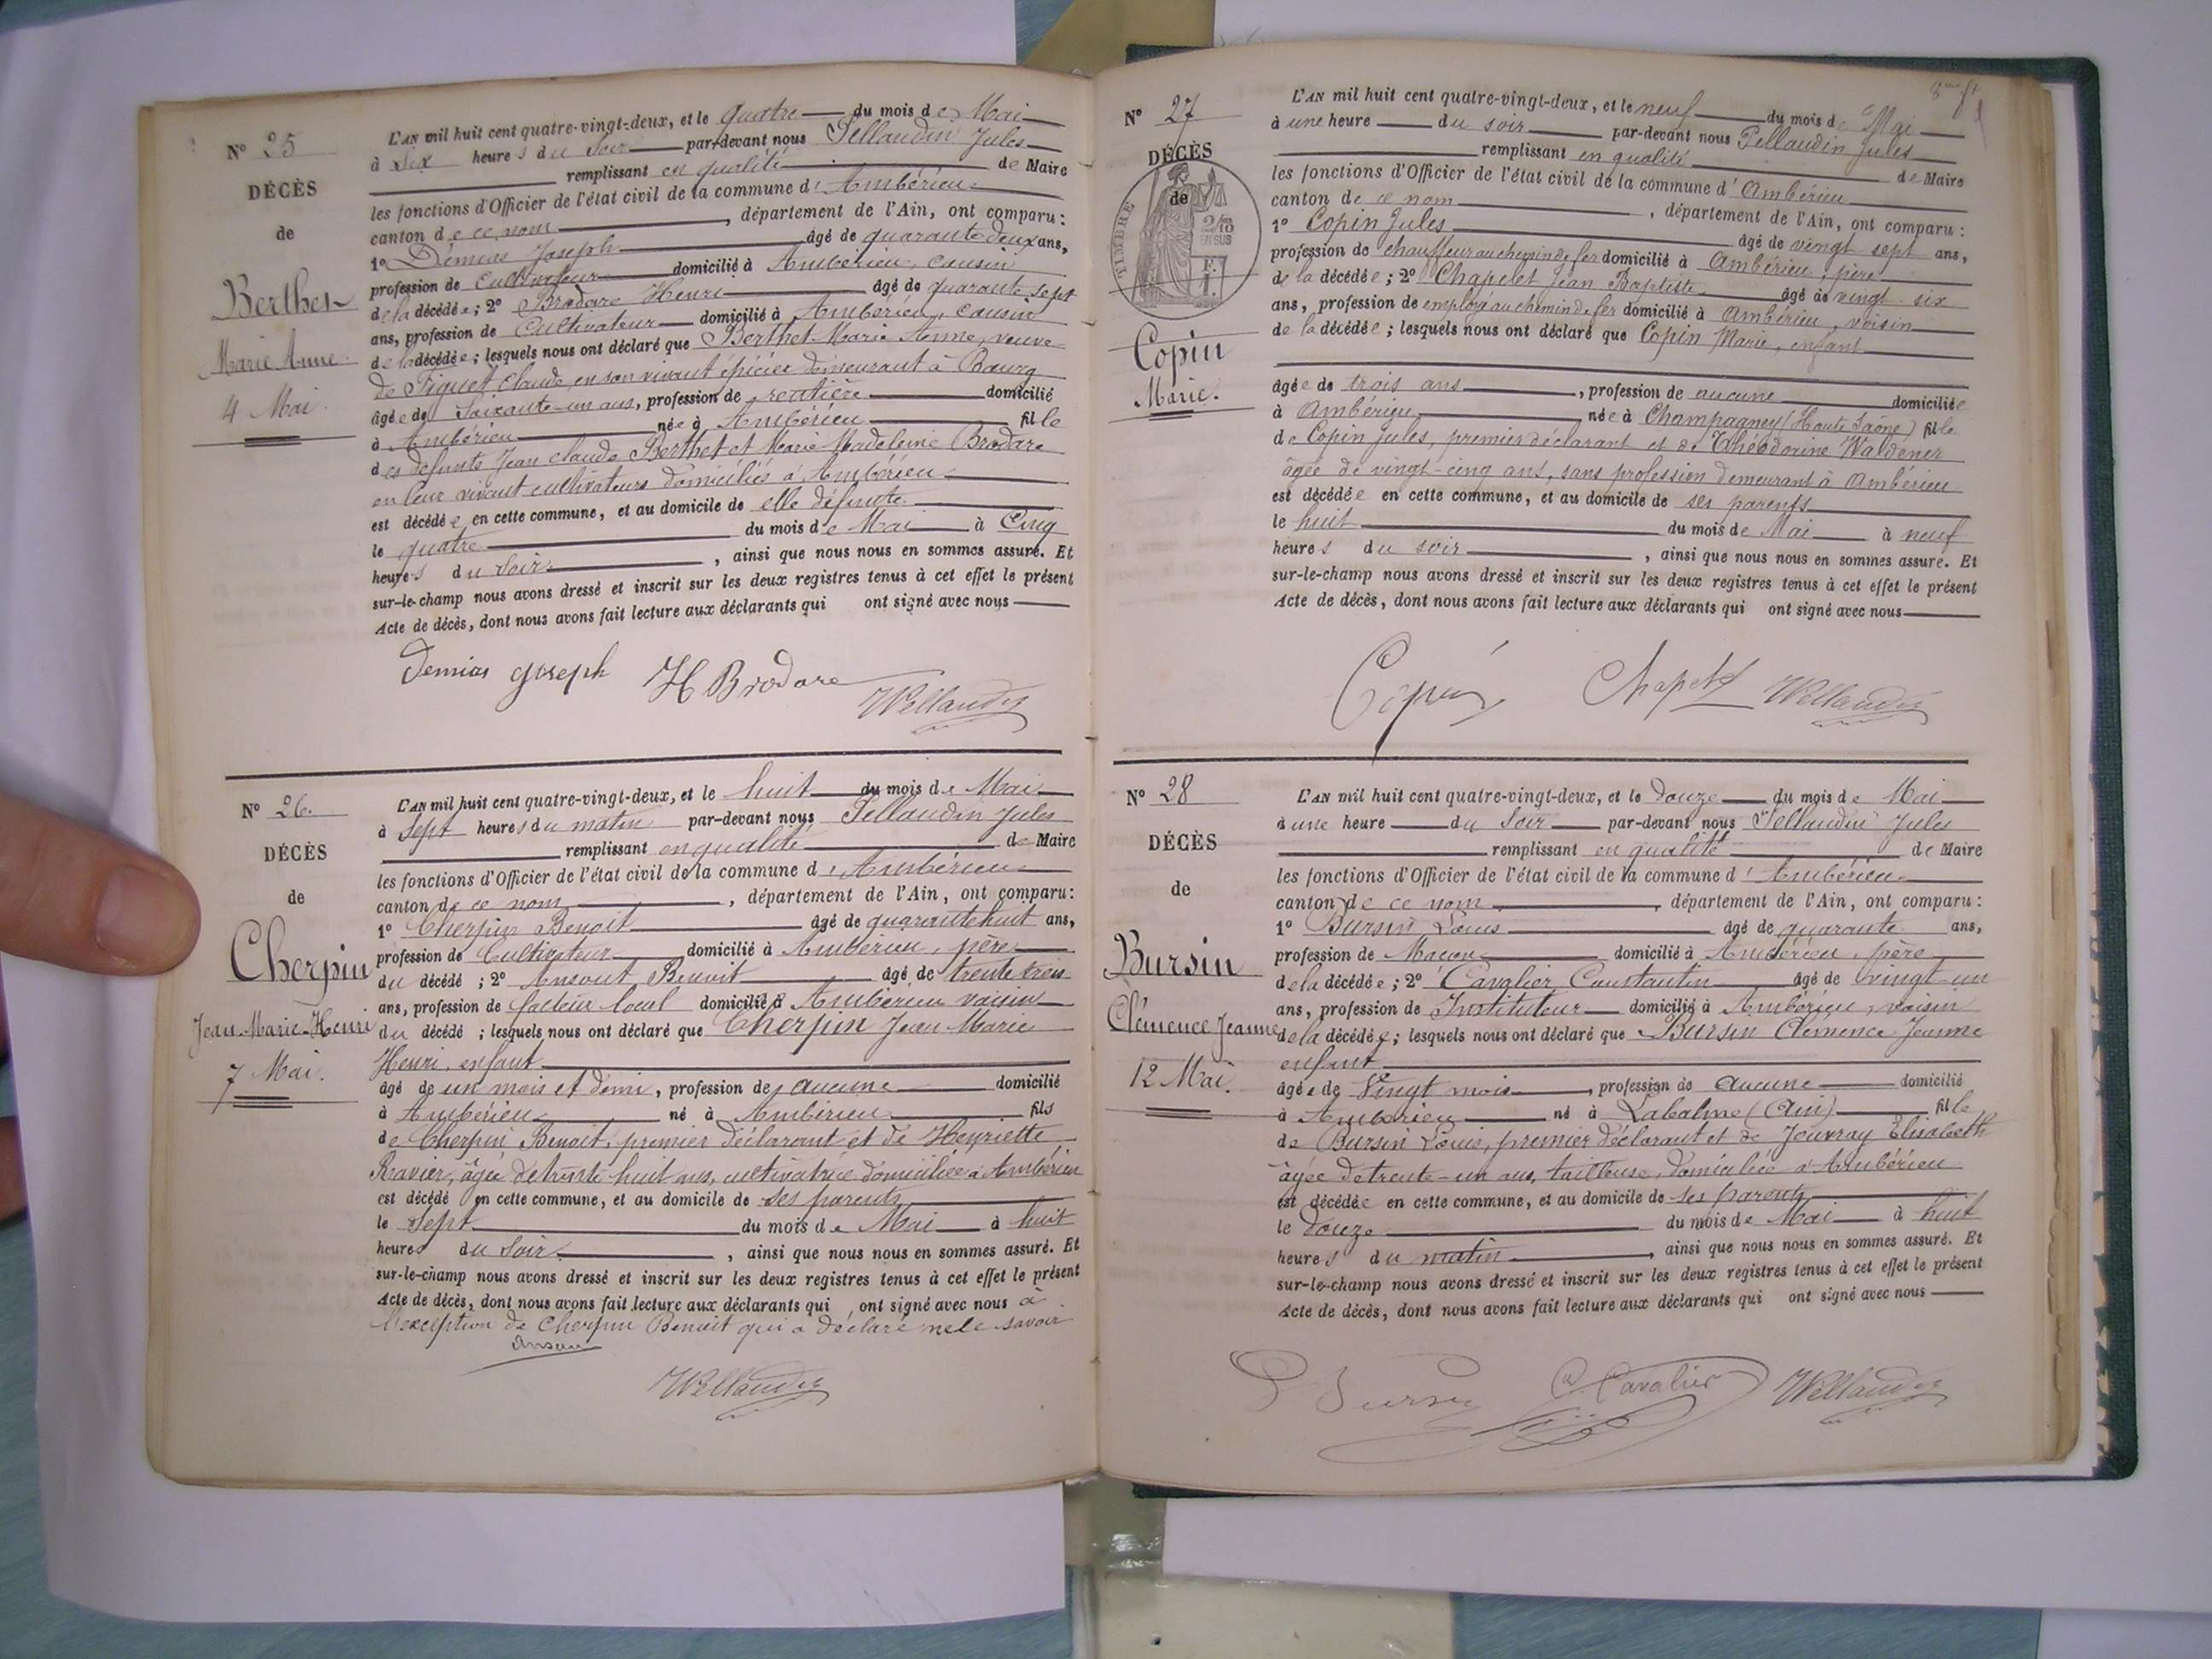 N° 25
DÉCÈS
de
Berthet
Marie Anne
4 Mai.
L'AN mil huit cent quatre-vingt-deux, et le quatre du mois de Mai
à Six heures du Soir par-devant nous Pellaudin Jules
remplissant en qualité de Maire
les fonctions d'Officier de l'état civil de la commune d'Ambérieu
canton de ce nom, département de l'Ain, ont comparu:
1° Démias Joseph âgé de quarante deux ans,
profession de Cultivateur domicilié à Ambérieu, cousin
de la décédée; 2° Brodare Henri âgé de quarante sept
ans, profession de Cultivateur domicilié à Ambérieu, cousin
de la décédée; lesquels nous ont déclaré que Berthet Marie Anne, veuve
de Figuet Claude, en son vivant épicier demeurant à Bourg
âgée de Soixante-un ans, profession de rentière domicilié
à Ambérieu née à Ambérieu fille
des défunts Jean Claude Berthet et Marie Madeleine Brodare
en leur vivant cultivateurs domiciliés à Ambérieu
est décédée en cette commune, et au domicile de elle défunte
le quatre du mois de Mai à Cinq
heures du Soir, ainsi que nous nous en sommes assuré. Et
sur-le-champ nous avons dressé et inscrit sur les deux registres tenus à cet effet le présent
Acte de décès, dont nous avons fait lecture aux déclarants qui ont signé avec nous
Demias Joseph H Brodare
N° 26.
DÉCÈS
de
Cherpin
Jean-Marie-Henri
7 Mai.
L'AN mil huit cent quatre-vingt-deux, et le huit du mois de Mai
à Sept heures du matin par-devant nous Pellaudin Jules
remplissant en qualité de Maire
les fonctions d'Officier de l'état civil de la commune d'Ambérieu
canton de ce nom, département de l'Ain, ont comparu:
1° Cherpin Benoit âgé de quarante huit ans,
profession de Cultivateur domicilié à Ambérieu, père
du décédé; 2° Ansout Benoit âgé de trente trois
ans, profession de facteur local domicilié à Ambérieu voisin
du décédé; lesquels nous ont déclaré que Cherpin Jean Marie
Henri, enfant
âgé de un mois et demi, profession de aucune domicilié
à Ambérieu né à Ambérieu fils
de Cherpin Benoit, premier déclarant et de Henriette
Ravier, âgée de trente huit ans, cultivatrice domiciliée à Ambérieu
est décédé en cette commune, et au domicile de ses parents
le Sept du mois de Mai à huit
heures du Soir, ainsi que nous nous en sommes assuré. Et
sur-le-champ nous avons dressé et inscrit sur les deux registres tenus à cet effet le présent
Acte de décès, dont nous avons fait lecture aux déclarants qui ont signé avec nous à
l'exception de Cherpin Benoit qui a déclaré ne le savoir
N° 27
DÉCÈS
de
TIMBRE
2/10
EN SUS
Copin
Marie.
L'AN mil huit cent quatre-vingt-deux, et le neuf du mois de Mai
à une heure du soir par-devant nous Pellaudin Jules
remplissant en qualité de Maire
les fonctions d'Officier de l'état civil de la commune d'Ambérieu
canton de ce nom, département de l'Ain, ont comparu:
1° Copin Jules âgé de vingt sept ans,
profession de chauffeur au chemin de fer domicilié à Ambérieu, père
de la décédée; 2° Chapelet Jean Baptiste âgé de vingt six
ans, profession de employé au chemin de fer domicilié à Ambérieu, voisin
de la décédée; lesquels nous ont déclaré que Copin Marie, enfant
âgée de trois ans, profession de aucune domiciliée
à Ambérieu née à Champagney (Haute Saône) fille
de Copin Jules, premier déclarant et de Théodorine Waldener
âgée de vingt-cinq ans, sans profession demeurant à Ambérieu
est décédée en cette commune, et au domicile de ses parents
le huit du mois de Mai à neuf
heures du soir, ainsi que nous nous en sommes assuré. Et
sur-le-champ nous avons dressé et inscrit sur les deux registres tenus à cet effet le présent
Acte de décès, dont nous avons fait lecture aux déclarants qui ont signé avec nous
Copin
N° 28
DÉCÈS
de
Bursin
Clémence Jeanne
12 Mai.
L'AN mil huit cent quatre-vingt-deux, et le douze du mois de Mai
à une heure du Soir par-devant nous Pellaudin Jules
remplissant en qualité de Maire
les fonctions d'Officier de l'état civil de la commune d'Ambérieu
canton de ce nom, département de l'Ain, ont comparu:
1° Bursin Louis âgé de quarante ans,
profession de Maçon domicilié à Ambérieu, père
de la décédée; 2° Cavalier Constantin âgé de vingt-un
ans, profession de Instituteur domicilié à Ambérieu, voisin
de la décédée; lesquels nous ont déclaré que Bursin Clémence Jeanne
enfant
âgée de Vingt mois, profession de aucune domicilié
à Ambérieu né à Labalme (Ain) fille
de Bursin Louis, premier déclarant et de Jouvray Elisabeth
âgée de trente-un ans, tailleuse, domiciliée à Ambérieu
est décédée en cette commune, et au domicile de ses parents
le douze du mois de Mai à huit
heures du matin, ainsi que nous nous en sommes assuré. Et
sur-le-champ nous avons dressé et inscrit sur les deux registres tenus à cet effet le présent
Acte de décès, dont nous avons fait lecture aux déclarants qui ont signé avec nous
C. Cavalier